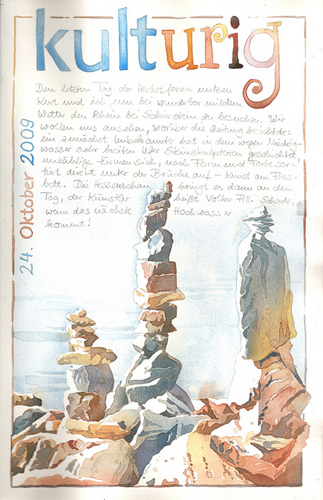 kulturig
24. Oktober 2009
Den letzten Tag der Herbstferien nutzen
Kurt und ich, um bei wunderbar mildem
Wetter den Rhein bei Schierstein zu besuchen. Wir
wollen uns ansehen, worüber die Zeitung berichtete:
ein zunächst Unbekannter hat in den wegen Niedrig-
wasser sehr breiten Ufer Steinskulpturen geschichtet
unzählige türmen sich, nach Form und Farbe sor-
tiert direkt unter der Brücke auf - Kunst am Fluss-
bett. Die Hessenschau bringt es dann an den
Tag, der Künstler heißt Volker Schade,
wann das nächste Hochwasser
kommt!